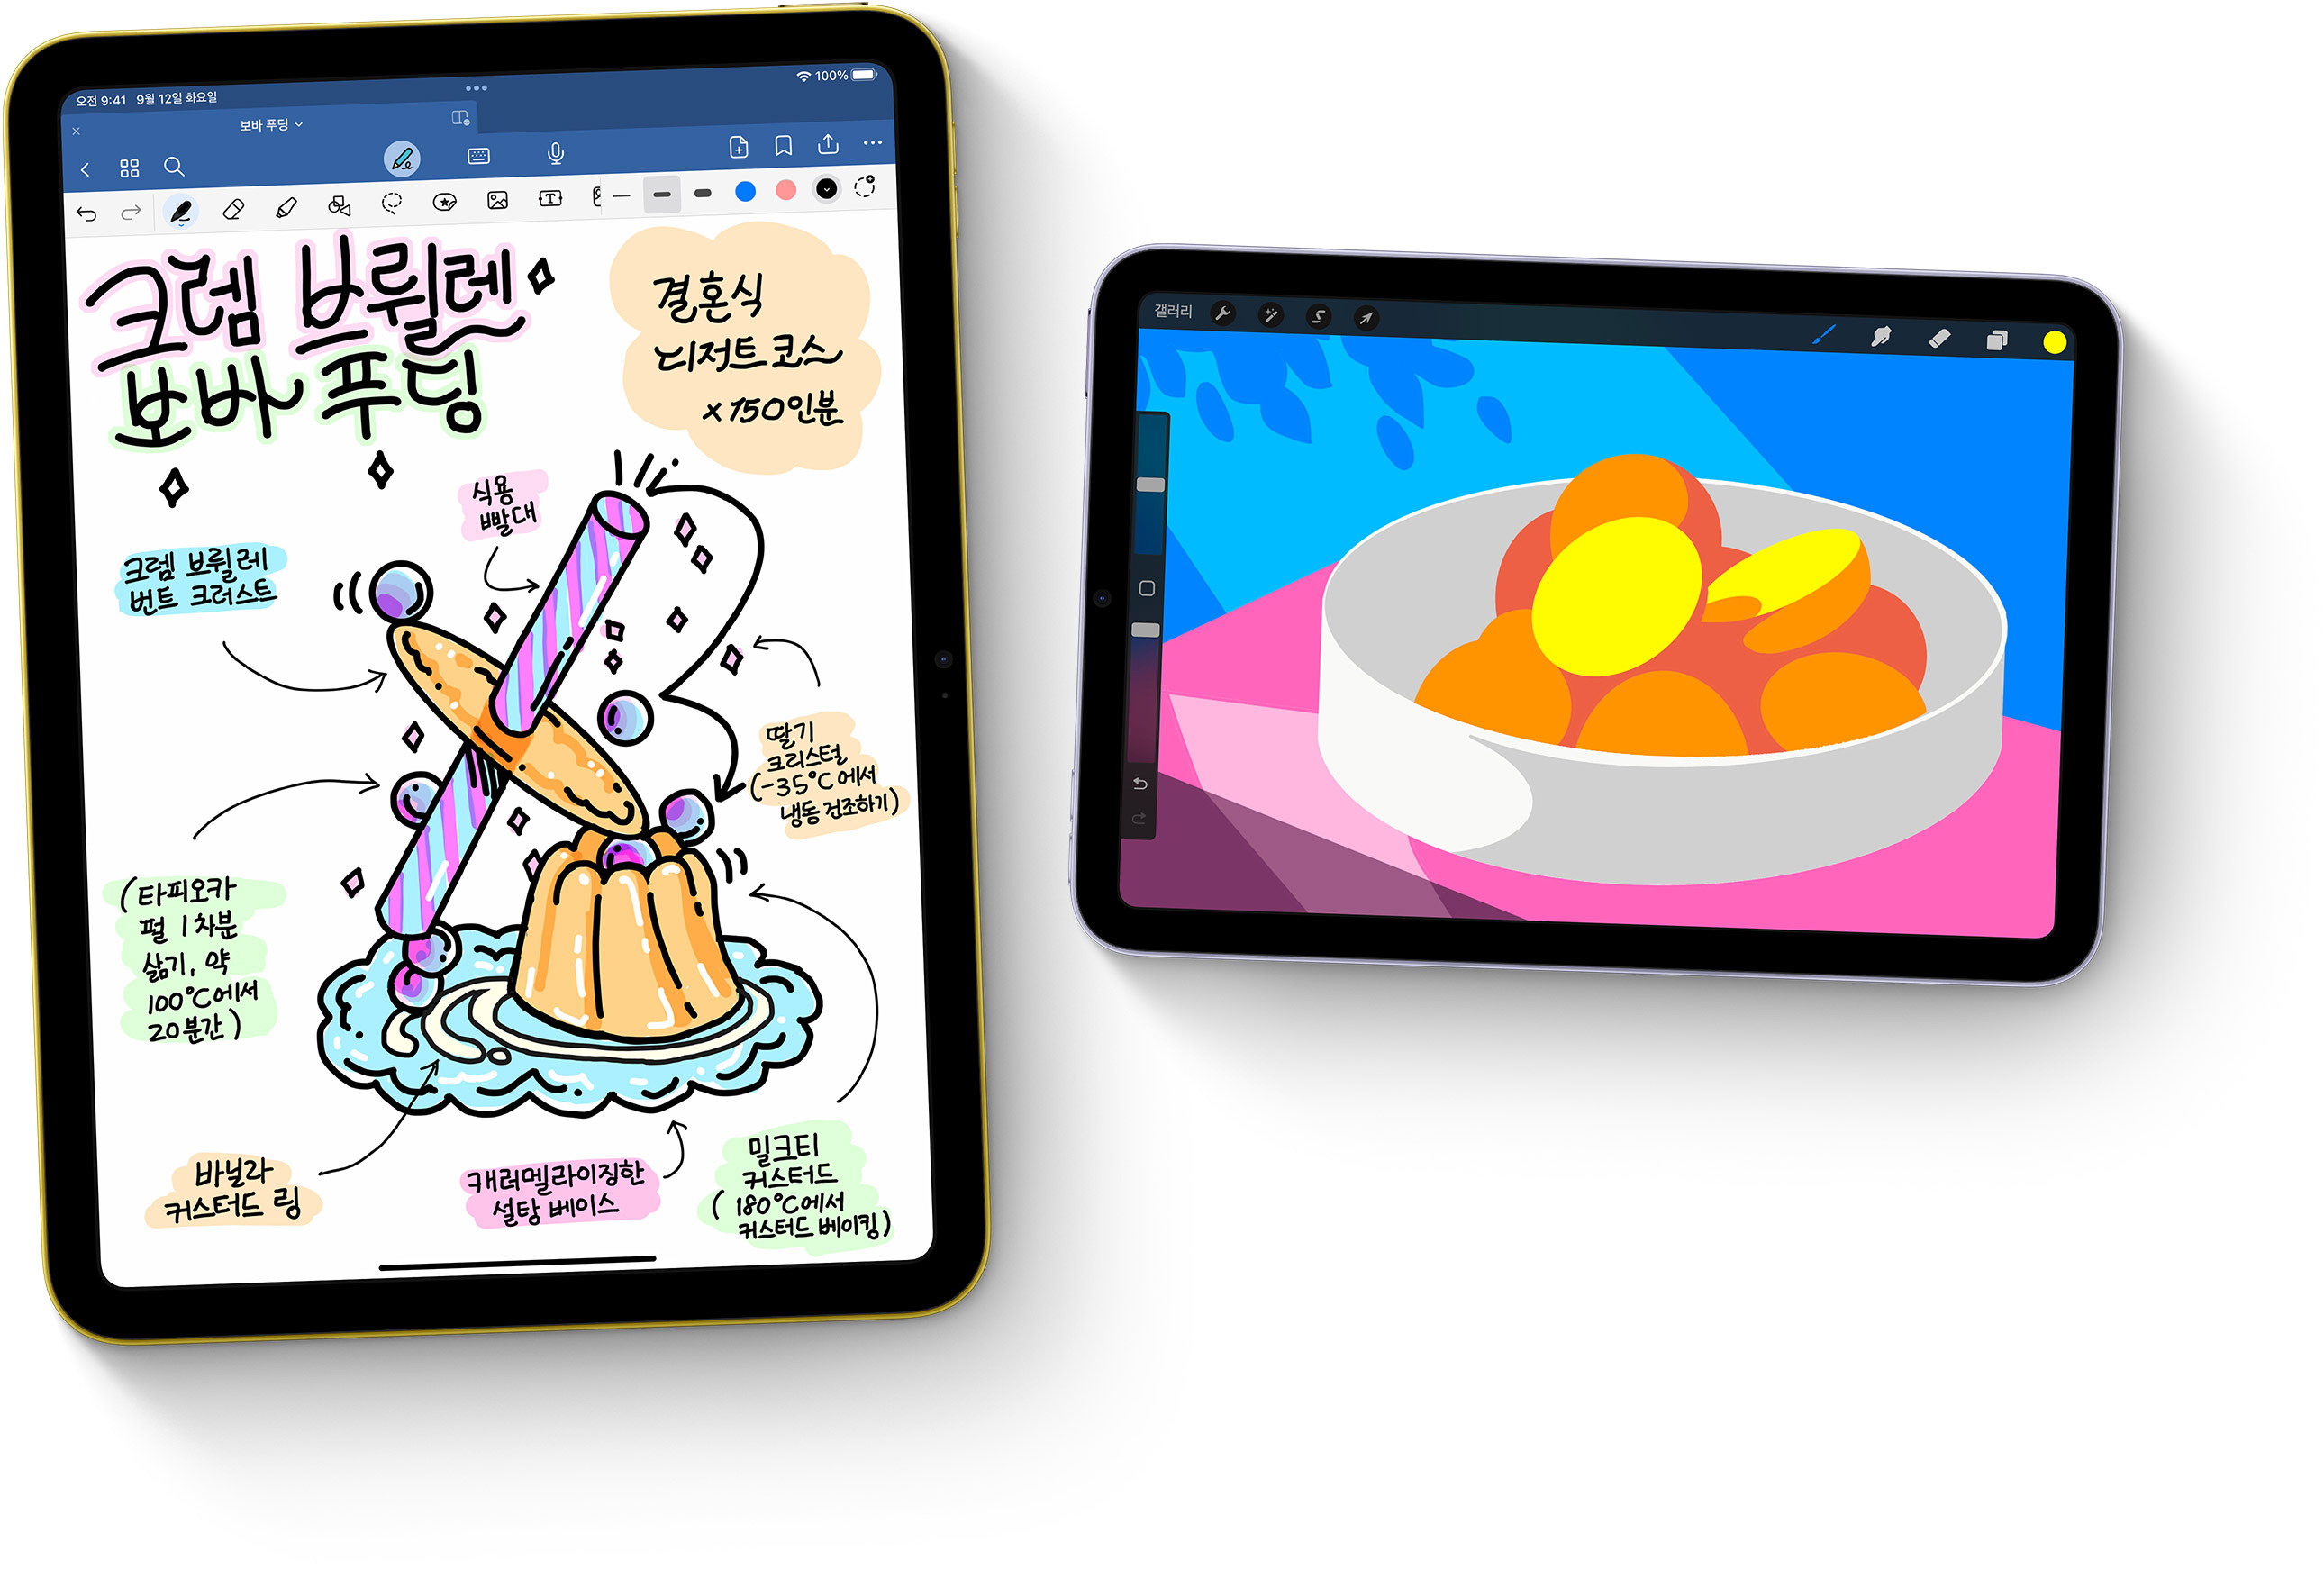 오전 9:41 9월 12일 화요일
100%
보바 푸딩
크렘 브륄렌
보바 푸딩
결혼식
디저트 코스
x 150인분
식용
빨대
크렘 브륄레
번트 크러스트
딸기
크리스털
(-35°C에서
냉동 건조하기)
(타피오카
펄 1차분
삶기, 약
100°C에서
20분간)
바닐라
커스터드 링
캐러멜라이징한
설탕 베이스
밀크티
커스터드
(180°C에서
커스터드 베이킹)
갤러리